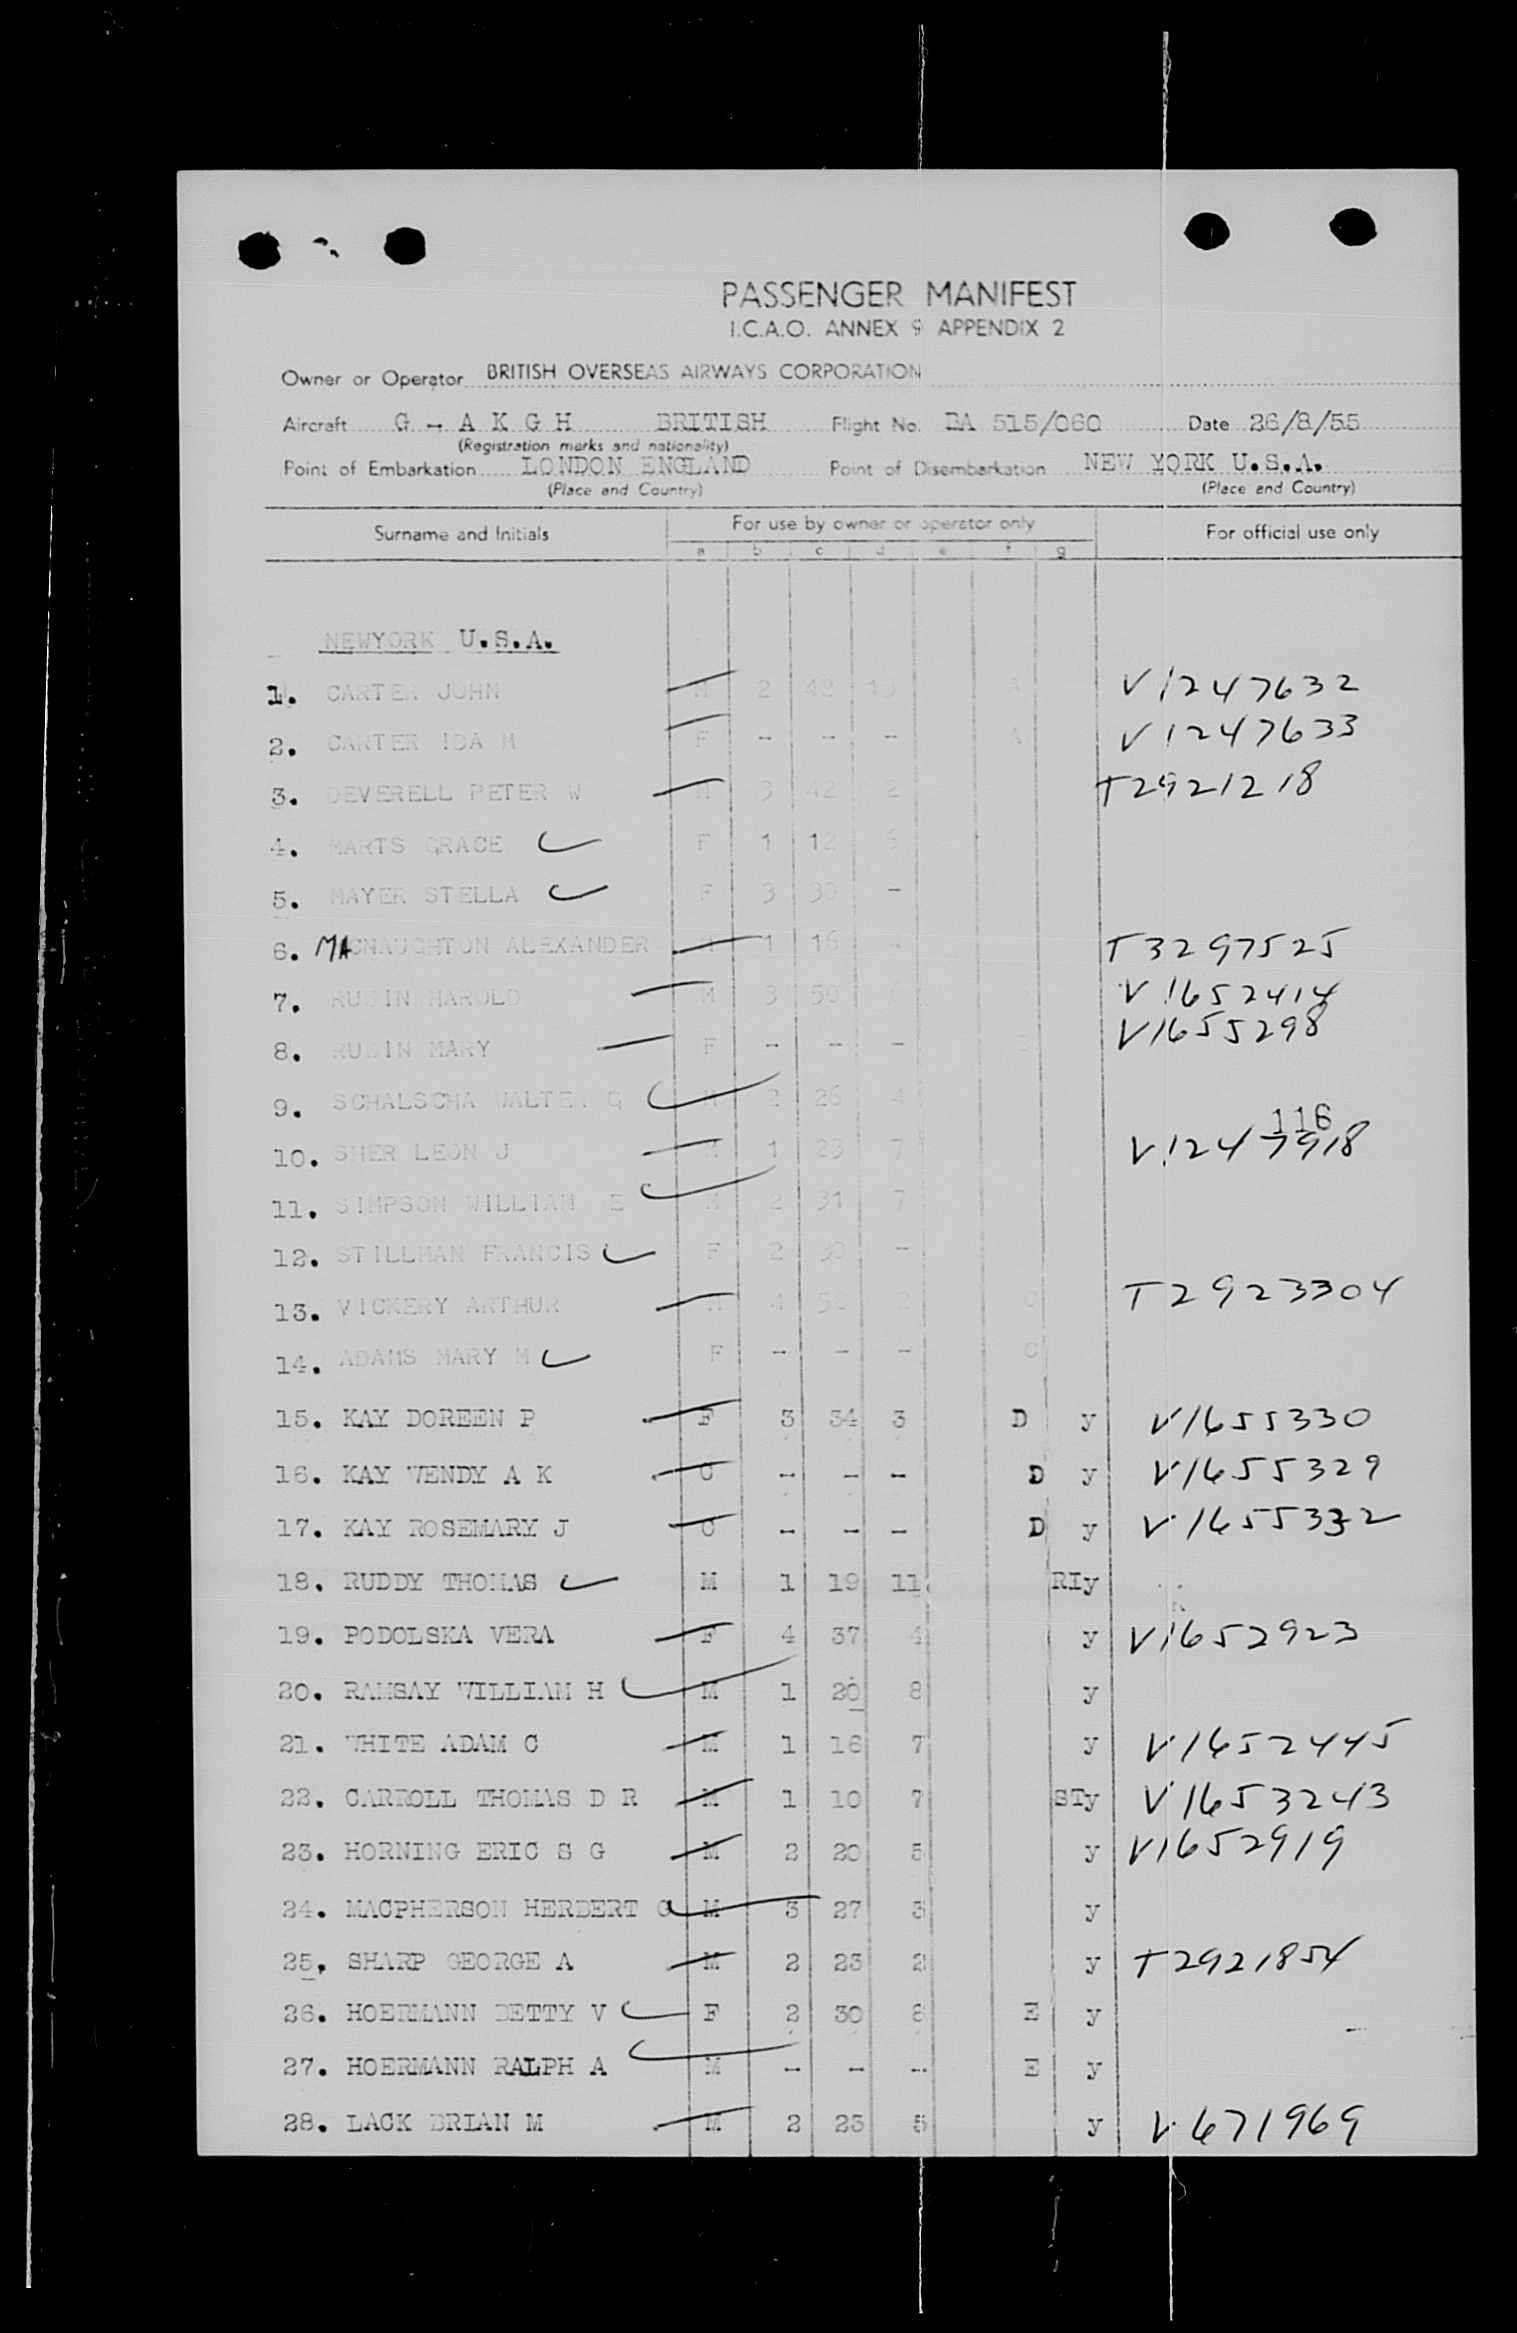 PASSENGER MANIFEST
I.C.A.O. ANNEX 9 APPENDIX 2
Owner or Operator BRITISH OVERSEAS AIRWAYS CORPORATION
Aircraft G - A K G H BRITISH Flight No. BA 515/060 Date 26/8/55
(Registration marks and nationality)
Point of Embarkation LONDON ENGLAND Point of Disembarkation NEW YORK U.S.A.
(Place and Country) (Place and Country)
Surname and Initials For use by owner or operator only For official use only
a b c d e f g
NEWYORK U.S.A.
1. CARTER JOHN M 2 42 A V1247632
2. CARTER IDA M F - - - A V1247633
3. DEVERELL PETER W M 3 42 2 T2921218
4. MARTS GRACE F 1 12 6
5. MAYER STELLA F 3 30 -
6. MACNAUGHTON ALEXANDER M 1 16 4 T3297525
7. RUBIN HAROLD M 3 50 V1652414
8. RUBIN MARY F - - - V1655298
9. SCHALSCHA WALTER G M 2 26 4
116
10. SHER LEON J M 1 23 7 V1247918
11. SIMPSON WILLIAM E M 2 31 7
12. STILLMAN FRANCIS F 2 30 -
13. VICKERY ARTHUR M 4 2 C T2923304
14. ADAMS MARY M F - - - C
15. KAY DOREEN P F 3 34 3 D y V1655330
16. KAY WENDY A K C - - - D y V1655329
17. KAY ROSEMARY J C - - - D y V1655332
18. RUDDY THOMAS M 1 19 11 RIy
19. PODOLSKA VERA F 4 37 4 y V1652923
20. RAMSAY WILLIAM H M 1 20 8 y
21. WHITE ADAM C M 1 16 7 y V1652445
22. CARROLL THOMAS D R M 1 10 7 STy V1653243
23. HORNING ERIC S G M 2 20 5 y V1652919
24. MACPHERSON HERBERT G M 3 27 3 y
25. SHARP GEORGE A M 2 23 2 y T2921854
26. HOERMANN BETTY V F 2 30 8 E y
27. HOERMANN RALPH A M - - - E y
28. LACK BRIAN M M 2 23 5 y V671969